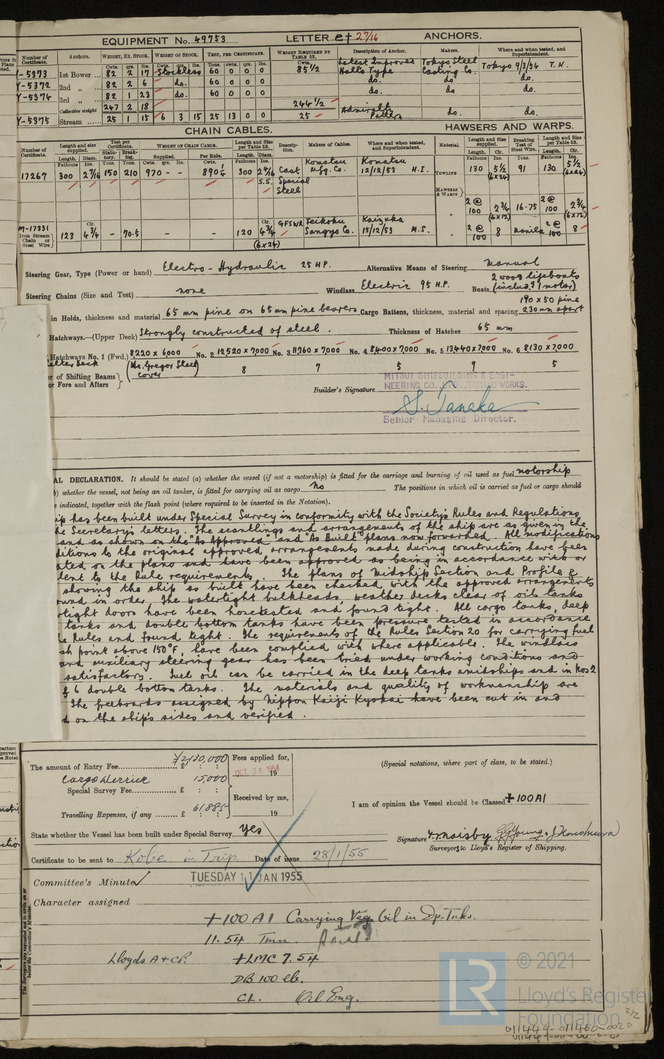 EQUIPMENT No. 49753 LETTER e† 27/16 ANCHORS.
Number of Certificate. Anchors. WEIGHT, EX. STOCK. WEIGHT OF STOCK. TEST, PER CERTIFICATE. WEIGHT REQUIRED BY TABLE 53. Description of Anchor. Makers. Where and when tested, and Superintendent.
Y-5373 1st Bower 82 2 17 Stockless 60 0 0 0 85½ Latest Improved Halls Type Tokyo Steel Casting Co. Tokyo 9/3/54 T.N.
Y-5372 2nd " 82 2 6 do. 60 0 0 0 do. do. do.
Y-5374 3rd " 82 1 23 do. 60 0 0 0 do do. do.
Collective weight 247 2 18 244½
Y-5375 Stream 25 1 15 6 3 15 25 13 0 0 25 Admiralty Pattern do. do.
CHAIN CABLES. HAWSERS AND WARPS.
Number of Certificate. Length and size supplied. Test per Certificate. WEIGHT OF CHAIN CABLE. Length and Size per Table 53. Description. Makers of Cables. Where and when tested, and Superintendent. Material. Length and Size supplied. Breaking Test of Steel Wire. Length and Size per Table 53.
17267 300 2 7/16 150 210 970 - - 890¼ 300 2 7/16 S.S. Cast Special Steel Komatsu Mfg. Co. Komatsu 12/12/53 H.I. TOWLINE 130 5½ (6x24) 91 130 5½ (6x24)
HAWSERS & WARPS 2 @ 100 2¾ (6x12) 16.75 2 @ 100 2¾ (6x12)
M-17331 Iron Stream Chain or Steel Wire 123 4¾ - 70.5 120 4¾ (6x24) GFSWR Teikoku Sangyo Co. Kaizuka 15/12/53 M.S. 2 @ 100 8 manila 2 @ 100 8
Steering Gear, Type (Power or hand) Electro-Hydraulic 25 H.P. Alternative Means of Steering Manual
Steering Chains (Size and Test) none Windlass Electric 95 H.P. Boats 2 wood lifeboats (includ'g 1 motor)
in Holds, thickness and material 65 mm pine on 65 mm pine bearers Cargo Battens, thickness, material and spacing 190 x 50 pine 230 mm apart
Hatchways.—(Upper Deck) Strongly constructed of steel. Thickness of Hatches 65 mm
Hatchways No. 1 (Fwd.) 8220 x 6000 No. 2 12520 x 7000 No. 3 11760 x 7000 No. 4 8400 x 7000 No. 5 13440 x 7000 No. 6 8130 x 7000
r of Shifting Beams or Fore and Afters (Mc.Gregor Steel cover 8 7 5 9 5
Builder's Signature MITSUI SHIPBUILDING & ENGINEERING CO., LTD., TAMANO WORKS.
S. Tanaka
Senior Managing Director.
AL DECLARATION. It should be stated (a) whether the vessel (if not a motorship) is fitted for the carriage and burning of oil used as fuel motorship
) whether the vessel, not being an oil tanker, is fitted for carrying oil as cargo No The positions in which oil is carried as fuel or cargo should
e indicated, together with the flash point (where required to be inserted in the Notation).
ip has been built under Special Survey in conformity with the Society's Rules and Regulations
he Secretary's letters. The scantlings and arrangements of the ship are as given in the
and as shown on the "As Approved" and "As Built" plans now forwarded. All modifications
ditions to the original approved arrangements made during construction have been
ated on the plans and have been approved as being in accordance with or
lent to the Rule requirements. The plans of Midship Section and Profile &
showing the ship as built have been checked with the approved arrangements
ound in order. The watertight bulkheads weather decks clear of oil tanks
rtight doors have been hosetested and found tight. All cargo tanks, deep
tanks and double bottom tanks have been pressure tested in accordance
e Rules and found tight. The requirements of the Rules Section 20 for carrying fuel
sh point above 150°F, have been complied with where applicable. The windlass
and auxiliary steering gear has been tried under working conditions and
satisfactory. Fuel oil can be carried in the deep tanks amidships and in Nos 2
& 6 double bottom tanks. The materials and quality of workmanship are
The freeboards assigned by Nippon Kaiji Kyokai have been cut in and
d on the ship's sides and verified.
The amount of Entry Fee 2,120,000 Fees applied for,
Cargo Derrick 15,000 19
Special Survey Fee £ : : Received by me,
Travelling Expenses, if any £ 61,885 19
(Special notations, where part of class, to be stated.)
I am of opinion the Vessel should be Classed ✠100A1
State whether the Vessel has been built under Special Survey Yes
Signature
Surveyors to Lloyd's Register of Shipping.
Certificate to be sent to Kobe in Trip. Date of issue 28/1/55
Committee's Minute TUESDAY 11 JAN 1955
Character assigned
✠100A1 Carrying Veg. Oil in Dp. Tnks.
11.54 Tmn.
Lloyds A & CP. ✠LMC 7.54
DB 100 lb.
CL. Oil Eng.
LR
© 2021
Lloyd's Register
Foundation
2/2
011449-011460-0020